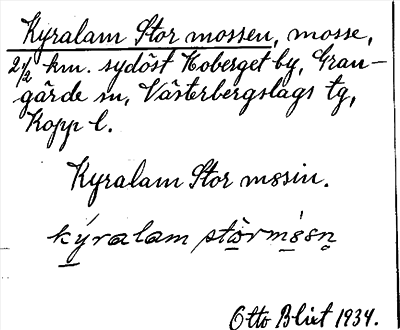 Kyralam Stor mossen, mosse,
2 1/2 km. sydöst Hoberget by, Gran-
gärde sn, Västerbergslags tg,
Kopp l.
Kyralam Stor mssin.
kýralam stòrmśsn̥
Otto Blixt 1934.